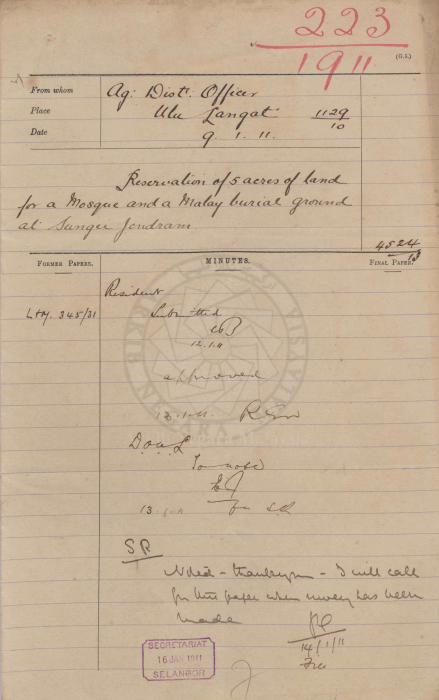 223
1911
(G.S.)
From whom
Ag: Distt. Officer
Place
Ulu Langat
1129
10
Date
9. 1. 11.
Reservation of 5 acres of land
for a Mosque and a Malay burial ground
at Sungei Jendram
4524
13
FORMER PAPERS.
MINUTES.
FINAL PAPER.
Resident
345/31
Submitted
12.1.11
approved
D.O.U.L
To note
13.1.11
for SR
SR
Noted - thank you - I will call
for this paper when survey has been
made
14/1/11
SECRETARIAT
16 JAN 1911
SELANGOR
ARKIB NEGARA MALAYSIA